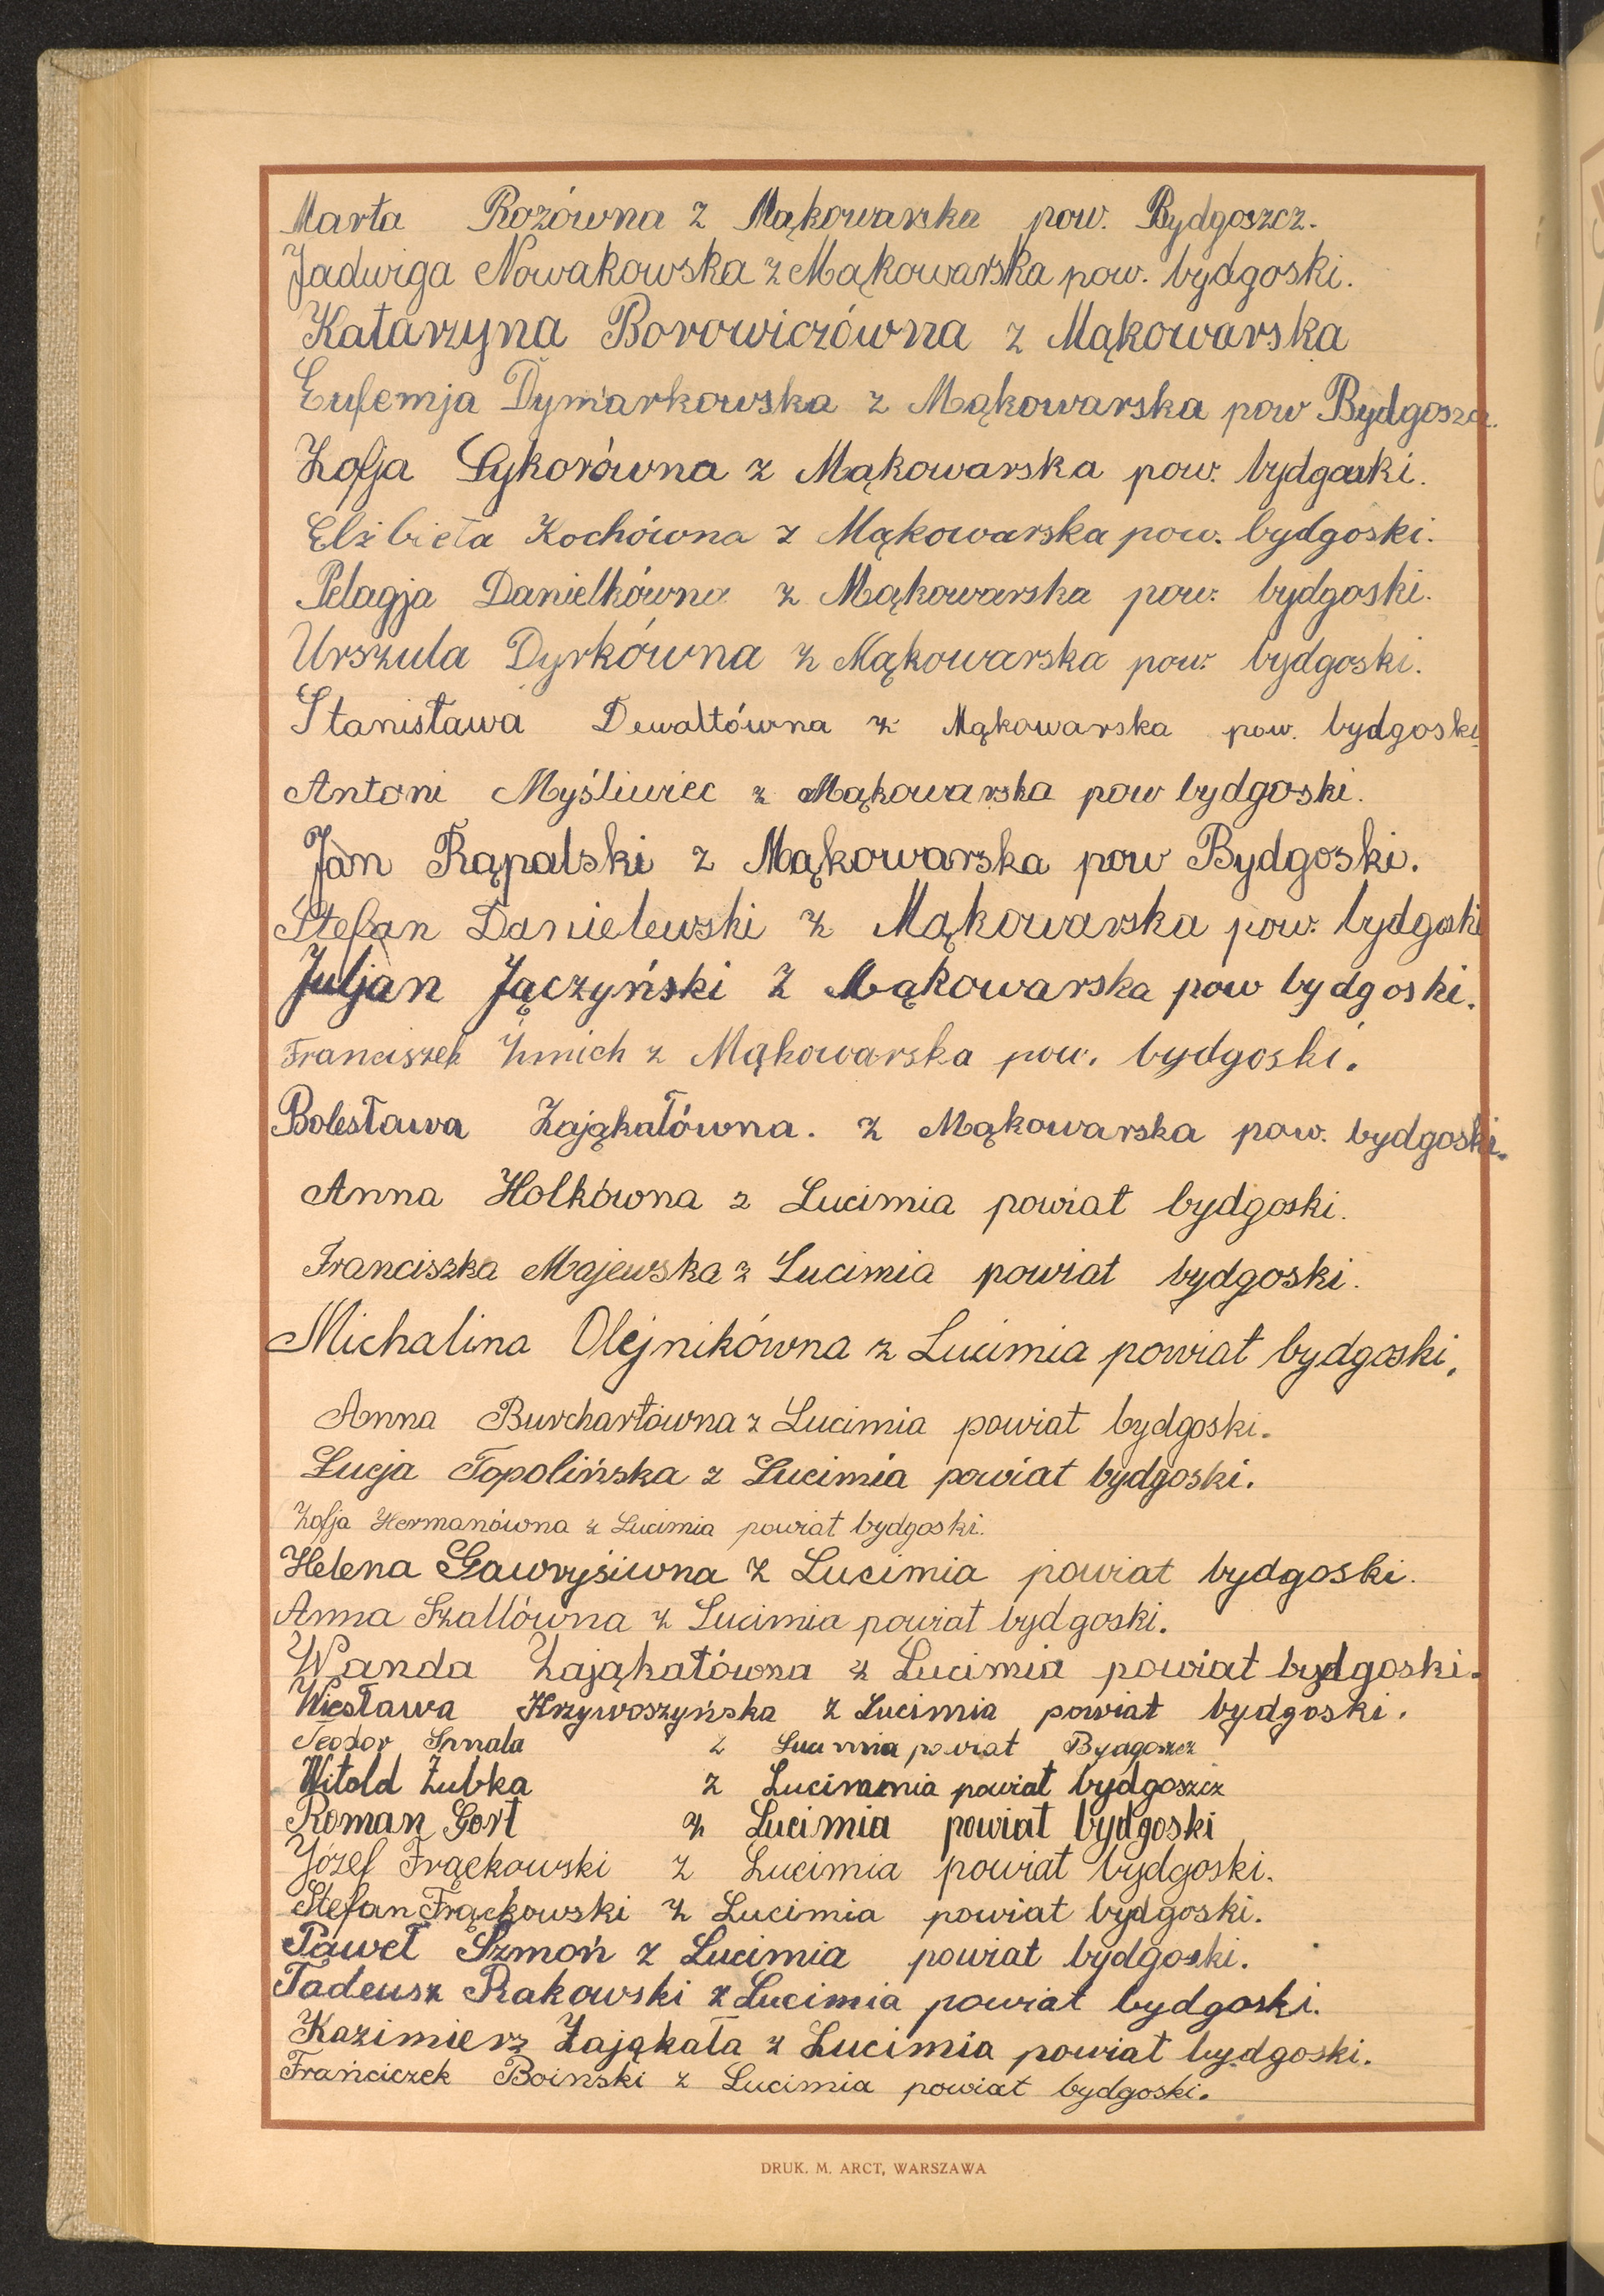 Marta Rozówna z Mąkowarska pow. Bydgoszcz.
Jadwiga Nowakowska z Mąkowarska pow. bydgoski.
Katarzyna Borowiczówna z Mąkowarska
Eufemja Dymarkowska z Mąkowarska pow Bydgoszcz.
Zofja Sykorówna z Mąkowarska pow. bydgoski.
Elżbieta Kochówna z Mąkowarska pow. bydgoski.
Pelagja Danielkówna z Mąkowarska pow. bydgoski.
Urszula Dyrkówna z Mąkowarska pow. bydgoski.
Stanisława Dewaltówna z Mąkowarska pow. bydgoski
Antoni Myśliwiec z Mąkowarska pow bydgoski.
Jan Rąpalski z Mąkowarska pow Bydgoski.
Stefan Danielewski z Mąkowarska pow. bydgoski
Juljan Jączyński z Mąkowarska pow bydgoski.
Franciszek Żmich z Mąkowarska pow. bydgoski.
Bolesława Zająkałówna. z Mąkowarska pow. bydgoski.
Anna Holkówna z Lucimia powiat bydgoski.
Franciszka Majewska z Lucimia powiat bydgoski.
Michalina Olejnikówna z Lucimia powiat bydgoski.
Anna Burchartówna z Lucimia powiat bydgoski.
Łucja Topolińska z Lucimia powiat bydgoski.
Zofja Hermanówna z Lucimia powiat bydgoski.
Helena Gawryśiwna z Lucimia powiat bydgoski.
Anna Szallówna z Lucimia powiat bydgoski.
Wanda Zająkałówna z Lucimia powiat bydgoski.
Wiesława Krzywoszyńska z Lucimia powiat bydgoski.
Teodor z Lucimia powiat Bydgoszcz
Witold Żubka z Lucimmia powiat bydgoszcz
Roman Gort z Lucimia powiat bydgoski
Józef Frąckowski z Lucimia powiat bydgoski.
Stefan Frąckowski z Lucimia powiat bydgoski.
Paweł Szmoń z Lucimia powiat bydgoski.
Tadeusz Rakowski z Lucimia powiat bydgoski.
Kazimierz Zająkała z Lucimia powiat bydgoski.
Franciczek Boiński z Lucimia powiat bydgoski.
DRUK. M. ARCT, WARSZAWA